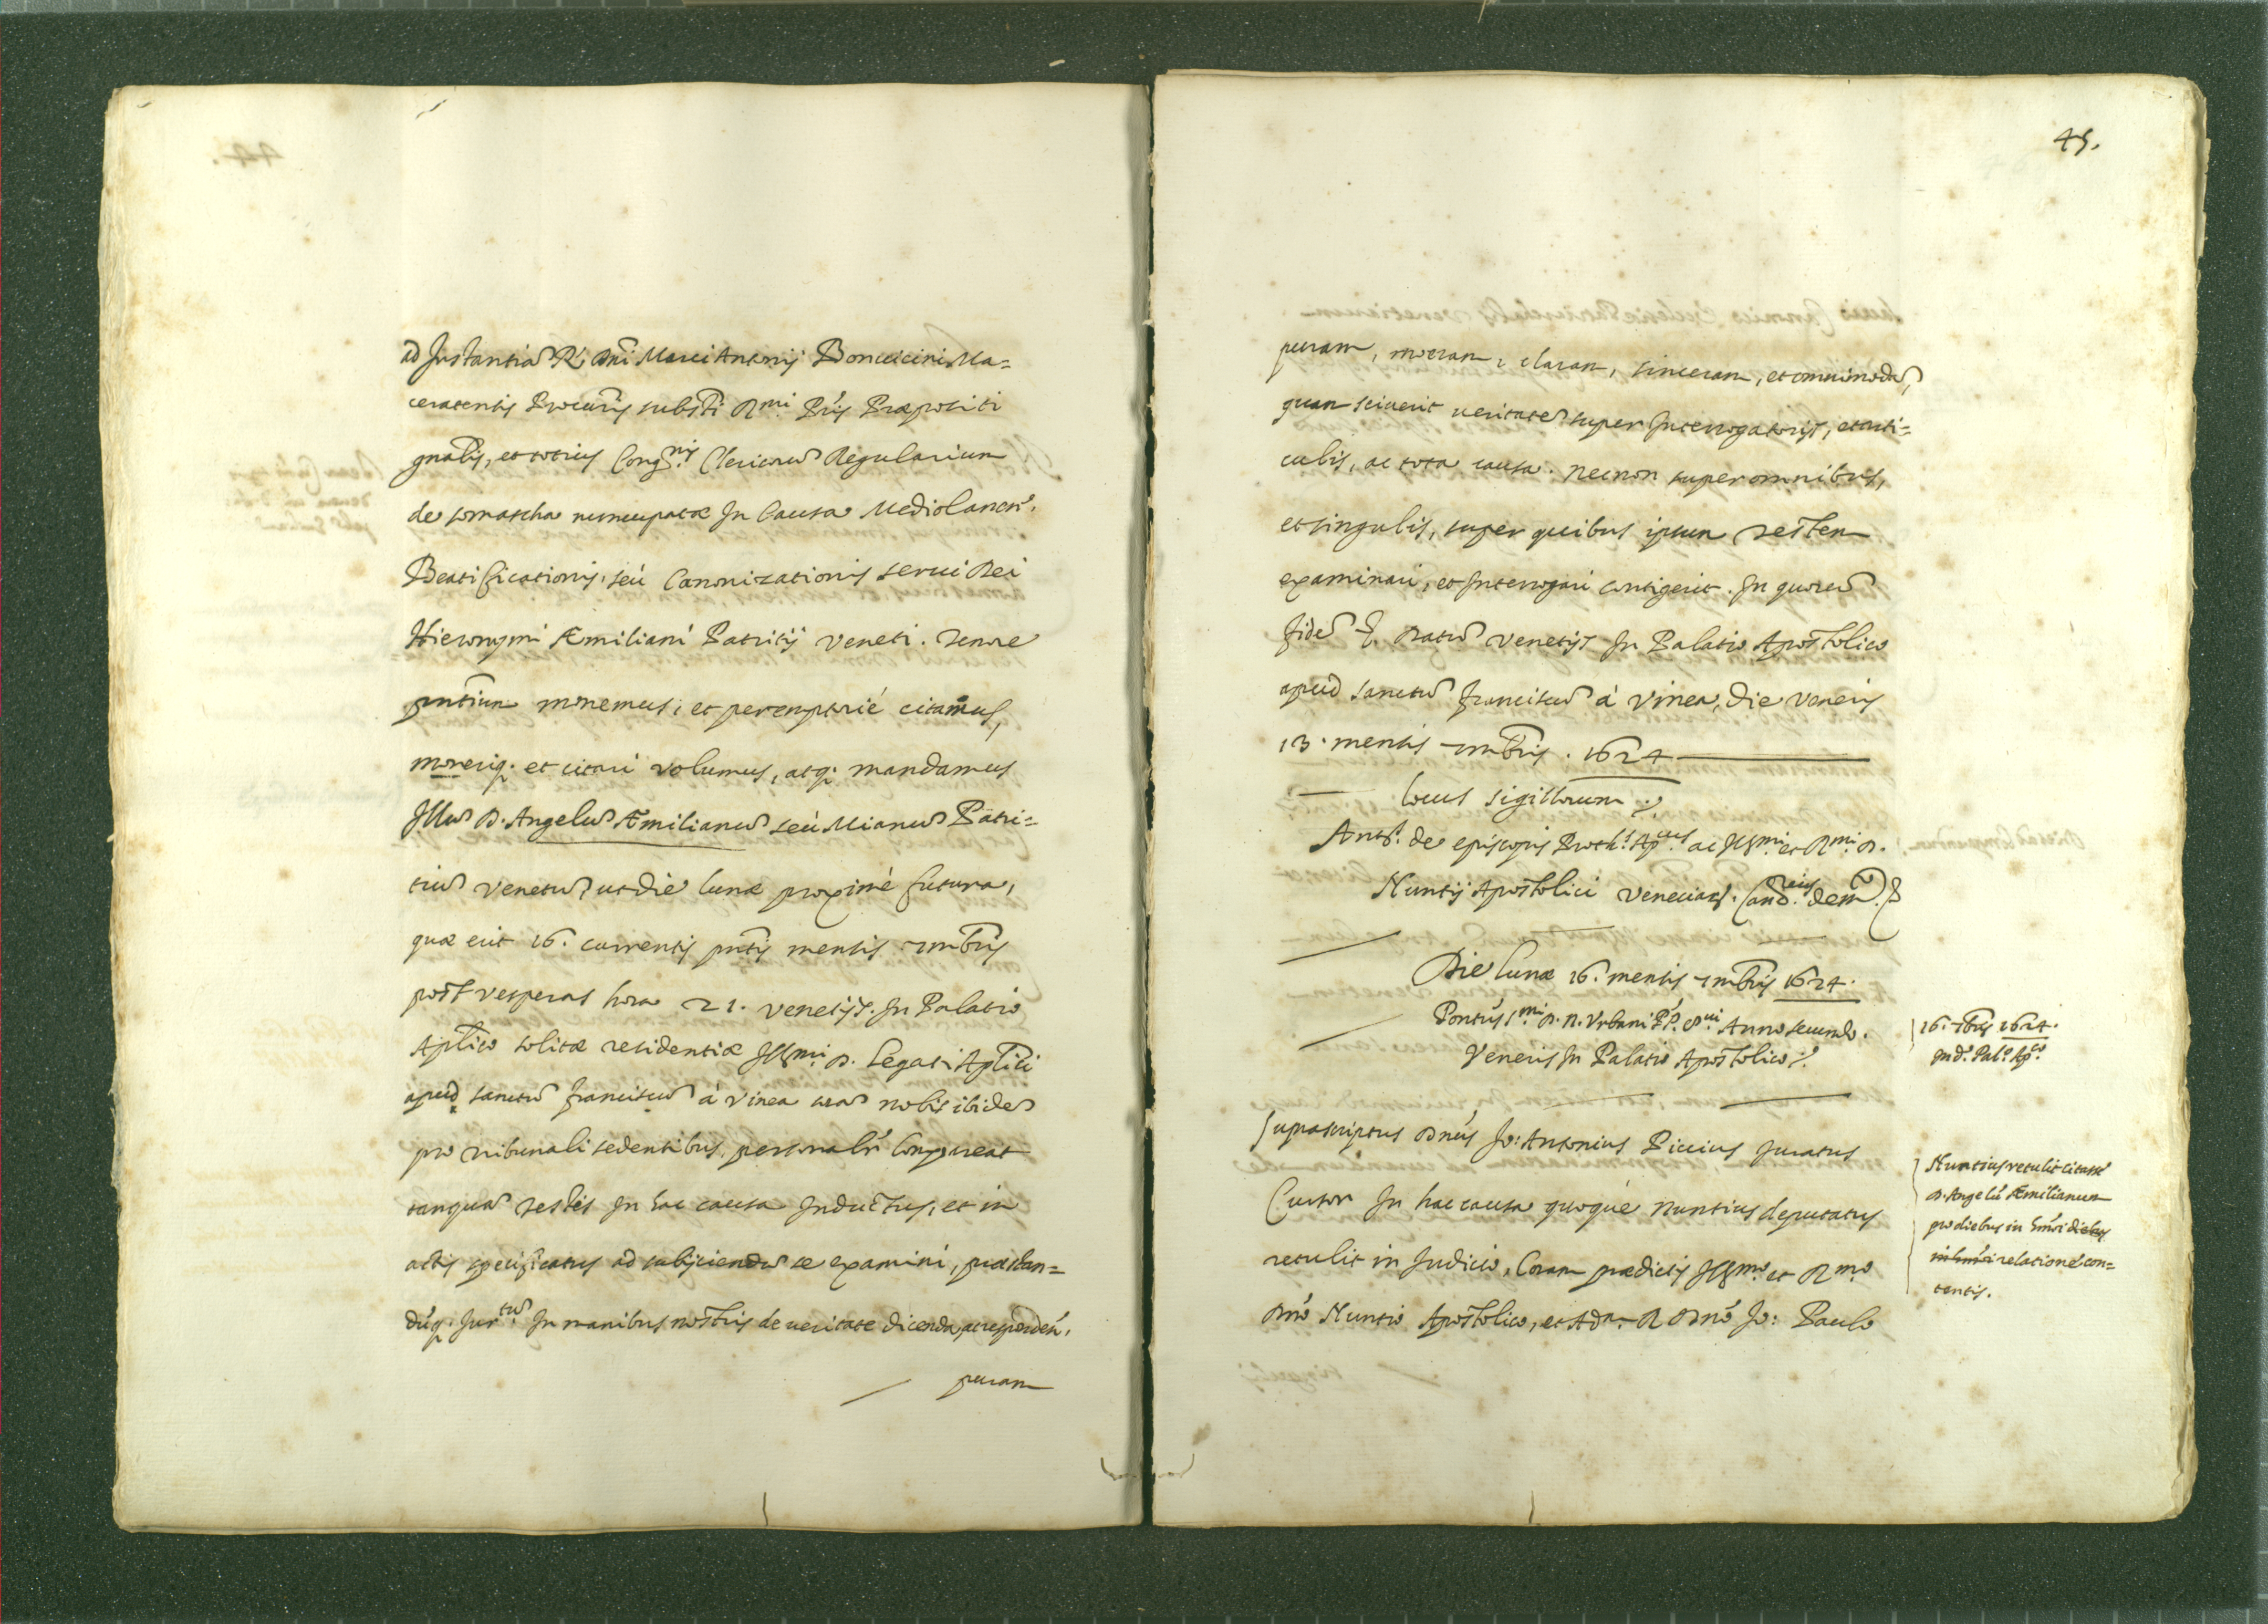 ad Instantiā R. Dñi Marci Antonij Bonucicini Ma=
ceratensis Procuris substi Rmi Pris Præpositi
gnalis, et totius Congnis Clericorū Regularium
de somascha nuncupatæ In Causa Mediolanen.
Beatificationis, seù Canonizationis serui Dei
Hieronymi Æmiliani Patritij Veneti. Tenore
pñtium monemus, et peremptoriè citamus,
moneriq; et citari volumus, atq; mandamus
Illū D. Angelū Æmilianū seù Mianū Patri=
tiū Venetū, ut die lunæ proximè futura,
quæ erit 16. currentis pñtis mensis 7mbris
post vesperas hora 21. Venetijs. In Palatio
Aplico solitæ residentiæ Illmi D. Legati Aplici
apud sanctū Franciscū à Vinea corā nobis ibidē
pro tribunali sedentibus, personalr Compareat
tanquā testis In hac causa Inductus, et in
actis specificatus ad subijciendū se examini, præstan=
dūq; Jurtū In manibus nostris de veritate dicenda, ac respondeñ.
puram
45.
puram, meram, claram, sinceram, et omnimodā,
quam sciuerit veritatē super Interrogatorijs, et arti=
culis, ac tota causa. necnon super omnibus,
et singulis, super quibus ipsum testem
examinari, et Interrogari contigerit. In quorū
fidē &. Datū Venetijs In Palatio Apostolico
apud sanctū Franciscū à Vinea, die Veneris
13. mensis 7mbris. 1624
locus sigillorum
Ants. de episcopis Proths. Apcus ac Illmi et Rmi D.
Nuntij Apostolici Veneciarꝫ. Cancrius dem.
Die lunæ 16. mensis 7mbris 1624.
Pontus smi D. N. Vrbani PP. 8ui Anno secundo.
Veneris In Palatio Apostolico
16. 7bris 1624.
In do. Palo. Apco.
suprascriptus Dñus Jo: Antonius Piccius Juratus
Cursor In hac causa quoque nuntius deputatus
retulit in Judicio, Coram prædictis Illmo et Rmo
Dño Nuntio Apostolico, et Adm. R Dño Jo: Paulo
Nuntius retulit citasse
D. Angelū Æmilianum
pro diebus in hmoi diebus
in hmoi relatione con=
tentis.